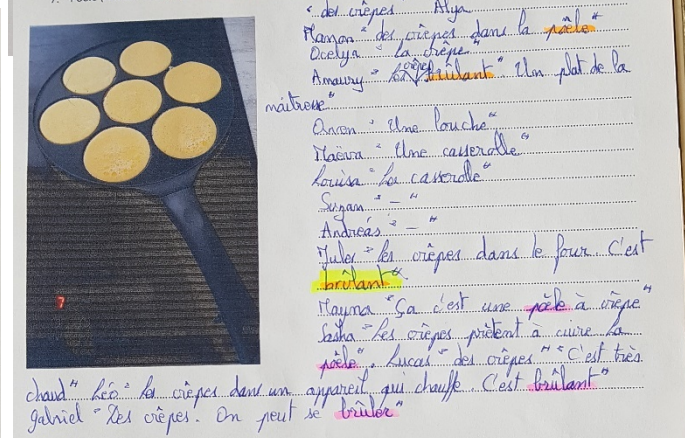 "des crêpes Alya
Maman "des crêpes dans la poêle"
Ocelya "la crêpe"
Amaury "La crêpe brûlant" Un plat de la
maîtresse"
"Une louche"
Maëva "Une casserolle"
Louisa "La casserolle"
Suzan "-"
Andréas "-"
Jules "Les crêpes dans le four. C'est
brûlant"
Mayna "Ça c'est une poêle à crêpe"
Sasha "Les crêpes prètent à cuire la
poêle". Lucas "des crêpes" "C'est très
chaud" Léo "les crêpes dans un appareil qui chauffe. C'est brûlant"
Gabriel "Les crêpes. On peut se brûler"
7